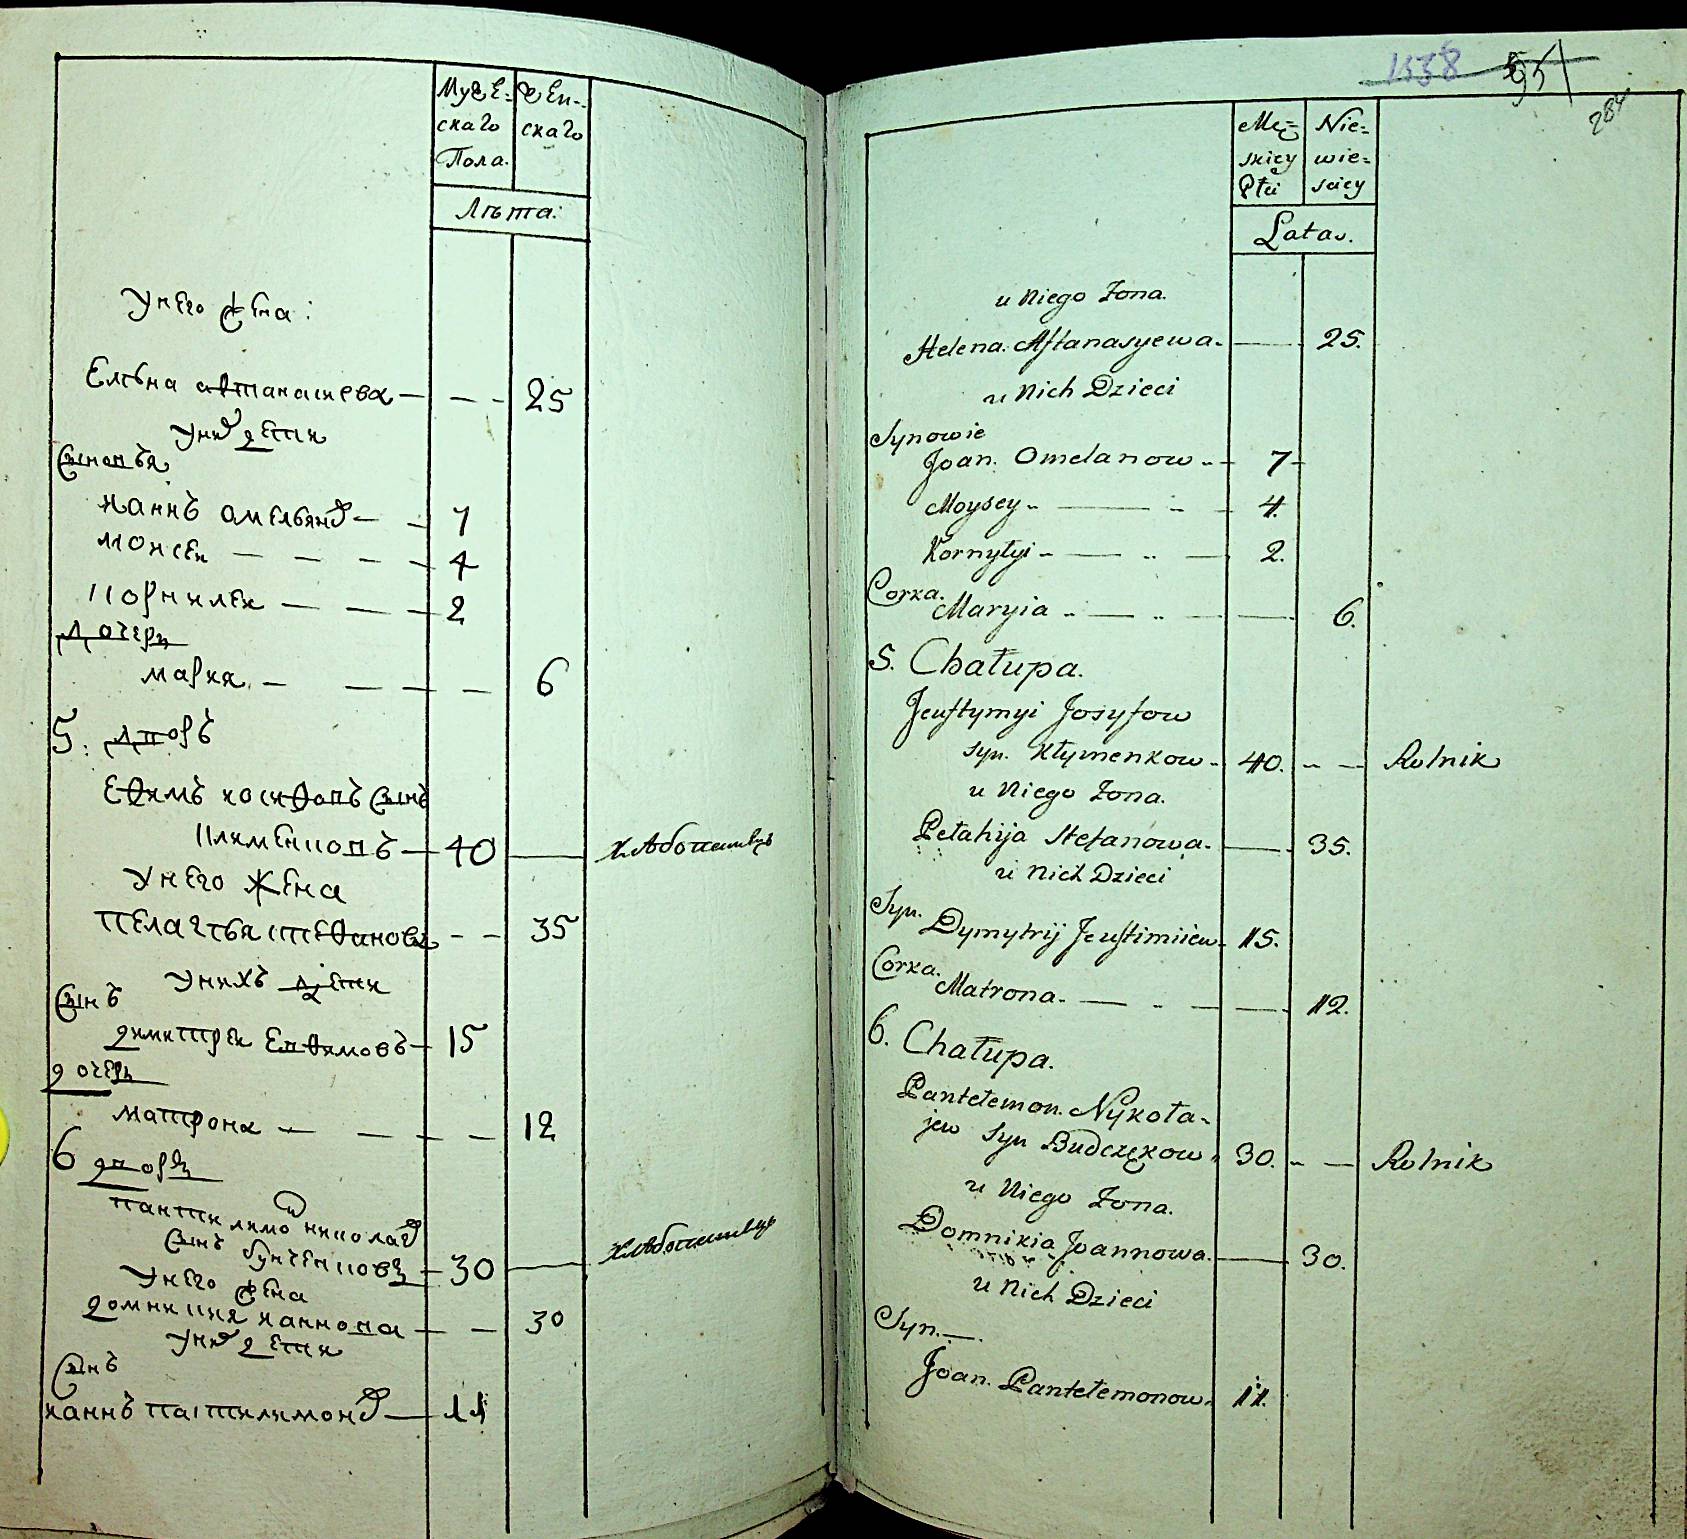 Муже-
скаго
Пола.
Жен-
скаго
Лѣта:
У него жена:
Елѣна Афтанасиева — — - 25
У них дети
Сыновья
Ианнъ Омельянов — - 7
Моисеи — — - - 4
Корнилеи — — - 2
Дочерь
Мария — — - - 6
5. Дворъ
Ефимъ Иосифовъ Сынъ
Клименковъ — 40 — Хлѣбопашецъ
У него Жена
Пелагѣя Стефанова - - 35
У нихъ Дети
Сынъ
Димитреи Ефимовъ — 15
дочерь
Матрона — — - - 12
6 дворъ
Пантилимон Николаев
Сынъ Будченковъ — 30 — Хлѣбопашецъ
У него жена
Домникия Ианнова — - 30
У них дети
Сынъ
Ианнъ Пантилимонов — 11
1538 551
284
Mę-
skiey
Płci
Nie-
wie-
sciey
Lata.
u Niego Zona.
Helena Aftanasyewa. — 25.
u Nich Dzieci
Synowie
Joan. Omelanow - 7
Moysey - — - — 4.
Kornyłyi - — - — 2.
Corka.
Maryia - — - — — 6.
5. Chałupa.
Jeuftymyi Josyfow
syn. Kłymenkow - 40. - — Rolnik
u Niego Zona.
Pełahija Stefanowa. — 35.
u Nich Dzieci
Syn.
Dymytrij Jeuftimiiew - 15.
Corka.
Matrona. — - — — 12.
6. Chałupa.
Pantełemon. Nykoła-
jew Syn Budczękow - 30. - — Rolnik
u Niego Zona.
Domnikia Joannowa. — 30.
u Nich Dzieci
Syn. —.
Joan. Pantełemonow. 11.